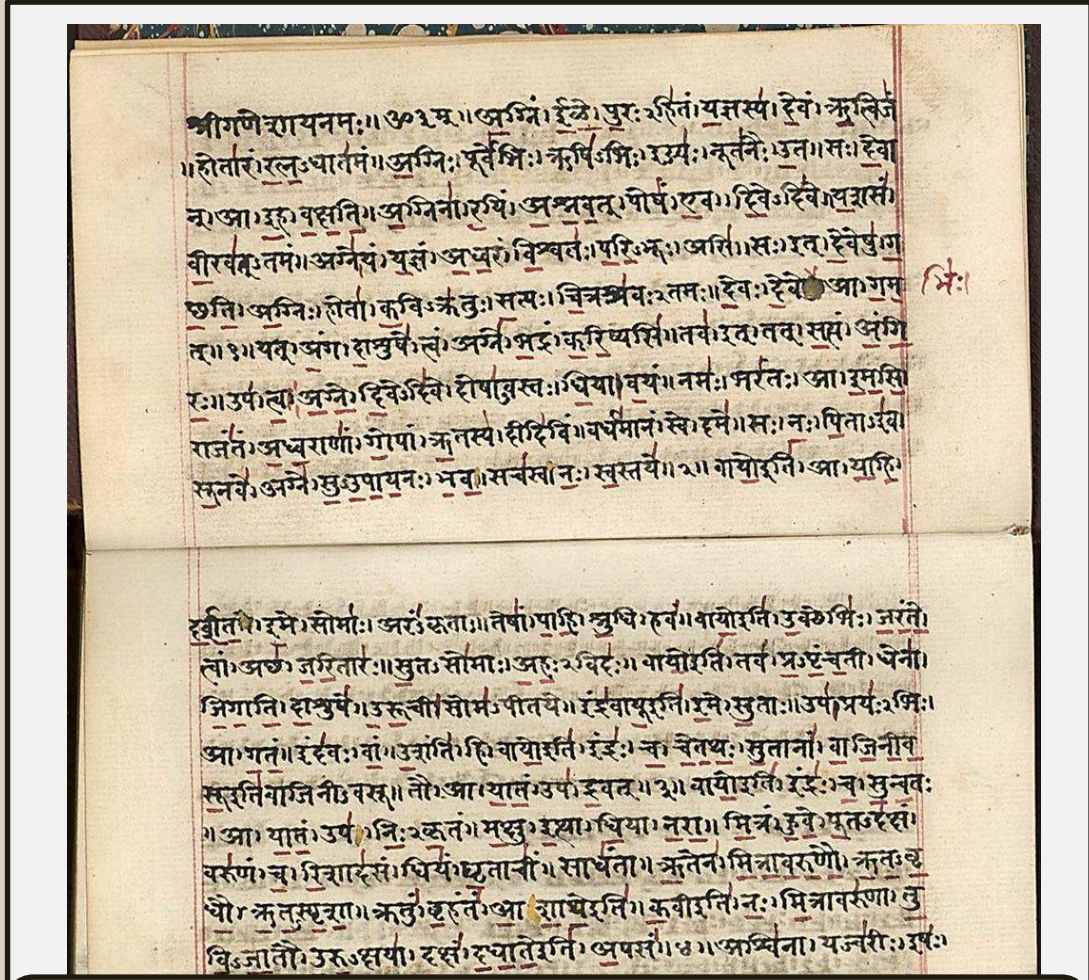 श्रीगणेशायनमः॥ ॐ३म्॥ अग्निं। ई॒ळे॒। पु॒रःऽहि॑तं। य॒ज्ञस्य॑। दे॒वं। ऋ॒त्विजं॑
॥होता॑रं। र॒त्न॒ऽधात॑मं॥ अ॒ग्निः। पूर्वे॑भिः। ऋषि॑ऽभिः। ईड्यः॑। नूत॑नैः। उ॒त॥ सः। दे॒वा
न्। आ। इ॒ह। व॒क्ष॒ति॒॥ अ॒ग्निना॑। र॒यिं। अ॒श्न॒व॒त्। पोषं॑। ए॒व। दि॒वेऽदि॑वे॥ य॒शसं॑
वी॒रव॑त्ऽतमं॥ अग्ने॑। यं। य॒ज्ञं। अ॒ध्व॒रं। वि॒श्वतः॑। प॒रि॒ऽभूः। असि॑॥ सः। इत्। दे॒वेषु॑। ग
च्छ॒ति॒। अ॒ग्निः। होता॑। क॒विऽक्र॑तुः। स॒त्यः। चि॒त्रश्र॑वःऽतमः॥ दे॒वः। दे॒वे आ। ग॒म॒
भिः॑।
त्॥१॥ यत्। अं॒ग। दा॒शुषे॑। त्वं। अग्ने॑। भ॒द्रं। क॒रि॒ष्यसि॑॥ तव॑। इत्। तत्। स॒त्यं। अं॒गि॒
रः॒॥ उप॑। त्वा॒। अ॒ग्ने॒। दि॒वेऽदि॑वे। दोषा॑ऽवस्तः। धि॒या। व॒यं॥ नमः॑। भरं॑तः। आ। इ॒म॒सि॒
राजं॑तं। अ॒ध्व॒राणां॑। गो॒पां। ऋ॒तस्य॑। दीदि॑विं॥ वर्ध॑मानं। स्वे। दमे॑॥ सः। नः॒। पि॒ताऽइ॑व।
सू॒नवे॑। अग्ने॑। सु॒ऽउ॒पा॒य॒नः। भ॒व॒॥ सच॑स्व। नः॒। स्व॒स्तये॑॥२॥ वायो॒इति॑। आ। या॒हि॒।
द॒र्श॒त॒। इ॒मे। सोमाः॑। अरं॑ऽकृताः॥ तेषां॑। पा॒हि॒। श्रु॒धि। हवं॑॥ वायो॒इति॑। उ॒क्थेभिः॑। ज॒रं॒ते॒।
त्वां। अच्छ॑। ज॒रि॒तारः॑॥ सु॒तऽसो॑माः। अ॒हः॒ऽविदः॑॥ वायो॒इति॑। तव॑। प्र॒ऽपृं॒च॒ती। धेना॑।
जि॒गा॒ति॒। दा॒शुषे॑। उ॒रू॒ची। सोम॑ऽपीतये॥ इंद्र॑वायू॒इति॑। इ॒मे। सु॒ताः॥ उप॑। प्रयः॑ऽभिः।
आ। ग॒तं॒॥ इंद॑वः। वां॒। उ॒शंति॑। हि॥ वायो॒इति॑। इंद्रः॑। च॒। चे॒त॒थः॒। सु॒तानां॑। वा॒जि॒नी॒व॒
सू॒इति॑वाजिनीऽवसू॥ तौ। आ। या॒तं॒। उप॑। द्र॒वत्॥३॥ वायो॒इति॑। इंद्रः॑। च॒। सु॒न्व॒तः
॥ आ। या॒तं॒। उप॑। निः॒ऽकृ॒तं॥ म॒क्षु। इ॒त्था। धि॒या। न॒रा॒॥ मि॒त्रं। हु॒वे॒। पू॒तऽद॑क्षं।
वरु॑णं। च॒। रि॒शाद॑सं। धियं॑। घृ॒ताचीं॑। साधं॑ता॥ ऋ॒तेन॑। मि॒त्रा॒व॒रु॒णौ॒। ऋ॒त॒ऽवृ॒
धौ॒। ऋ॒त॒ऽस्पृ॒शा॒॥ क्रतुं॑। बृ॒हंतं॑। आ॒शा॒थे॒इति॑॥ क॒वीइति॑। नः॒। मि॒त्रावरु॑णा। तु॒
वि॒ऽजा॒तौ। उ॒रु॒ऽक्षया॑। दक्षं॑। द॒धा॒ते॒इति॑। अ॒पसं॑॥४॥ अश्वि॑ना। यज्व॑रीः। इषः॑।